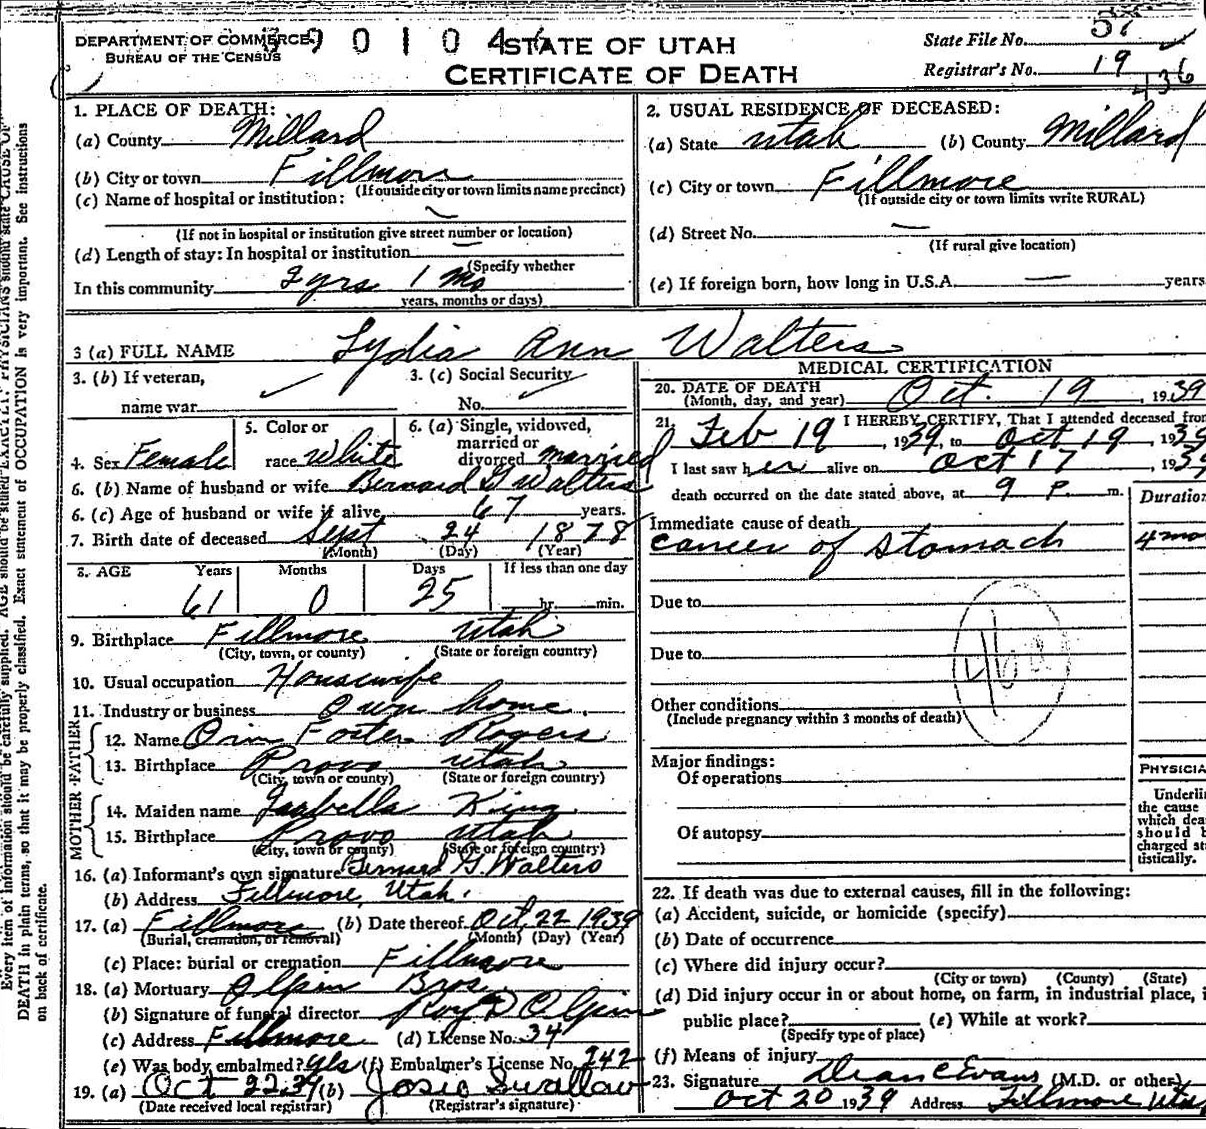 DEPARTMENT OF COMMERCE
BUREAU OF THE CENSUS
3 9 0 1 0 4
STATE OF UTAH
CERTIFICATE OF DEATH
State File No. 57
Registrar's No. 19
436
1. PLACE OF DEATH:
(a) County Millard
(b) City or town Fillmore
(If outside city or town limits name precinct)
(c) Name of hospital or institution: —
(If not in hospital or institution give street number or location)
(d) Length of stay: In hospital or institution —
(Specify whether
In this community yrs 1 mo
years, months or days)
2. USUAL RESIDENCE OF DECEASED:
(a) State Utah (b) County Millard
(c) City or town Fillmore
(If outside city or town limits write RURAL)
(d) Street No. —
(If rural give location)
(e) If foreign born, how long in U.S.A. — years
3 (a) FULL NAME Lydia Ann Walters
3. (b) If veteran, name war ✓
3. (c) Social Security No. ✓
4. Sex Female
5. Color or race White
6. (a) Single, widowed, married or divorced married
6. (b) Name of husband or wife Bernard G Walters
6. (c) Age of husband or wife if alive 67 years.
7. Birth date of deceased Sept 24 1878
(Month) (Day) (Year)
8. AGE Years Months Days If less than one day
61 0 25 hr. min.
9. Birthplace Fillmore Utah
(City, town, or county) (State or foreign country)
10. Usual occupation Housewife
11. Industry or business Own home.
FATHER
12. Name Orin Foster Rogers
13. Birthplace Provo Utah
(City, town or county) (State or foreign country)
MOTHER
14. Maiden name Isabella King
15. Birthplace Provo Utah
(City, town or county) (State or foreign country)
16. (a) Informant's own signature Bernard G. Walters
(b) Address Fillmore, Utah.
17. (a) Fillmore (b) Date thereof Oct. 22 1939
(Burial, cremation, or removal) (Month) (Day) (Year)
(c) Place: burial or cremation Fillmore
18. (a) Mortuary Olpin Bros.
(b) Signature of funeral director Roy D Olpin
(c) Address Fillmore (d) License No. 34
(e) Was body embalmed? yes (f) Embalmer's License No. 242
19. (a) Oct 22 39 (b) Josie Swallow
(Date received local registrar) (Registrar's signature)
MEDICAL CERTIFICATION
20. DATE OF DEATH Oct. 19, 1939
(Month, day, and year)
21. I HEREBY CERTIFY, That I attended deceased from
Feb 19, 1939, to Oct 19, 1939
I last saw her alive on Oct 17, 1939
death occurred on the date stated above, at 9 P. m.
Duration
Immediate cause of death
cancer of stomach 4 mo
Due to
Due to
Other conditions
(Include pregnancy within 3 months of death)
Major findings:
Of operations
Of autopsy
PHYSICIA
Underli
the cause
which dea
should b
charged st
tistically.
22. If death was due to external causes, fill in the following:
(a) Accident, suicide, or homicide (specify)
(b) Date of occurrence
(c) Where did injury occur?
(City or town) (County) (State)
(d) Did injury occur in or about home, on farm, in industrial place, i
public place? (e) While at work?
(Specify type of place)
(f) Means of injury
23. Signature Dean C Evans (M.D. or other)
Oct 20 1939 Address Fillmore Utah
Every item of information should be carefully supplied. AGE should be stated EXACTLY. PHYSICIANS should state CAUSE OF
DEATH in plain terms, so that it may be properly classified. Exact statement of OCCUPATION is very important. See instructions
on back of certificate.